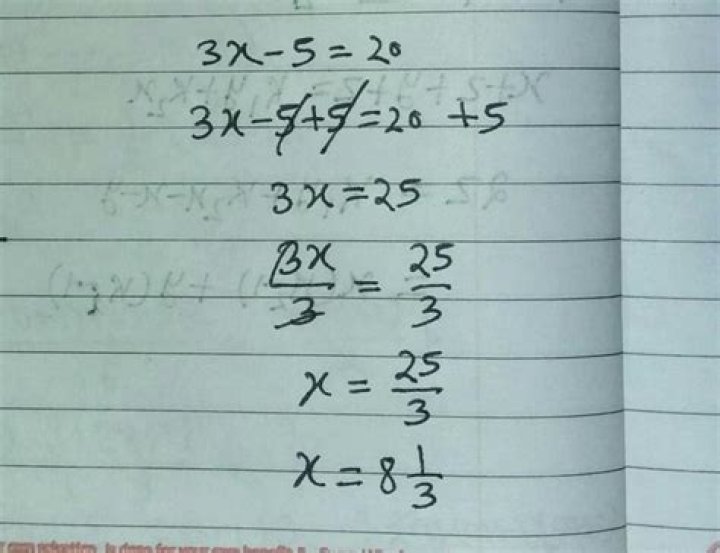 3x - 5 = 20
3x - 5 + 5 = 20 + 5
3x = 25
3x/3 = 25/3
x = 25/3
x = 8 1/3